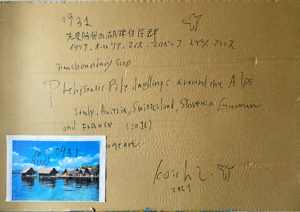 0931
イタリア、オーストリア、スイス、スロベニア、ドイツ、フランス
Transboundary Site
Prehistoric Pile dwellings around the Alps
Italy, Austria, Switzerland, Slovenia, German
and France (2011)
Koichi
2021
0931